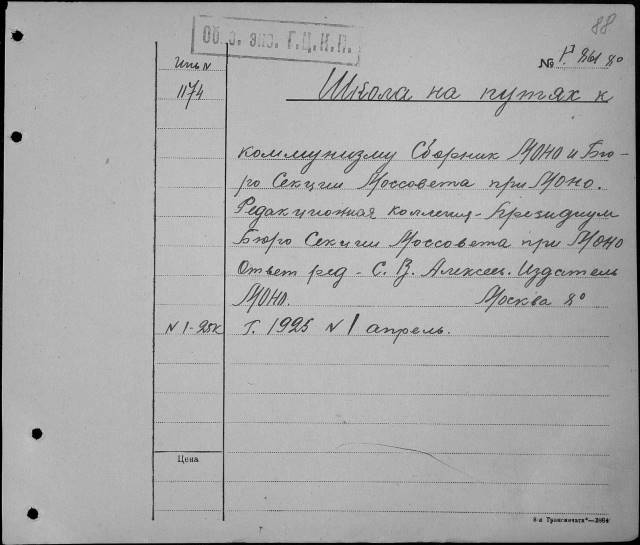 88
Об. э. экз. Г.Ц.К.П.
Инв N
1174
№ 861 8°
Школа на путях к
коммунизму Сборник МОНО и Бю-
ро Секции Моссовета при МОНО.
Редакционная коллегия - Президиум
Бюро Секции Моссовета при МОНО
Ответ ред - С. В. Алексеев. Издатель
МОНО. Москва 8°
N 1-25к Г. 1925 N 1 апрель.
Цена
8-я Транспечати"—2864